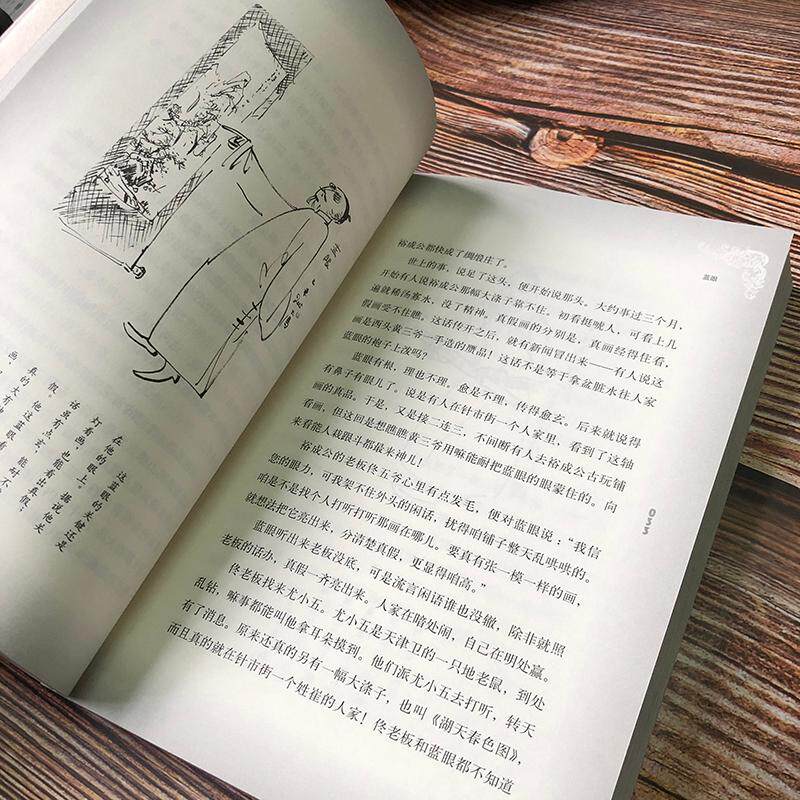 这蓝眼的关键还是
在他的眼上，据说他关
灯看画，也能看出真假。
话虽有点玄，能耐不
裕成公都快成了绸缎庄了。
世上的事，说足了这头，便开始说那头。大约事过三个月，
开始有人说裕成公那幅大涤子靠不住。初看挺唬人，可看上几
遍就稀汤寡水，没了精神。真假画的分别是，真画经得住看，
假画受不住瞧。这话传开之后，就有新闻冒出来——有人说这
画是西头黄三爷一手造的赝品！这话不是等于拿盆脏水往人家
蓝眼的袍子上泼吗？
蓝眼有根，理也不理。愈是不理，传得愈玄。后来就说得
有鼻子有眼儿了。说是有人在针市街一个人家里，看到了这轴
画的真品。于是，又是接二连三，不间断有人去裕成公古玩铺
看画，但这回是想瞧瞧黄三爷用嘛能耐把蓝眼的眼蒙住的。向
来看能人栽跟斗都最来神儿！
裕成公的老板佟五爷心里有点发毛，便对蓝眼说：“我信
您的眼力，可我架不住外头的闲话，扰得咱铺子整天乱哄哄的。
咱是不是找个人打听打听那画在哪儿。要真有张一模一样的画，
就想法把它亮出来，分清楚真假，更显得咱高。”
蓝眼听出来老板没底，可是流言闲语谁也没辙，除非就照
老板的话办，真假一齐亮出来。人家在暗处闹，自己在明处赢。
佟老板找来尤小五。尤小五是天津卫的一只地老鼠，到处
乱钻，嘛事都能叫他拿耳朵摸到。他们派尤小五去打听，转天
有了消息。原来还真的另有一幅大涤子，也叫《湖天春色图》，
而且真的就在针市街一个姓崔的人家！佟老板和蓝眼都不知道
蓝眼
033